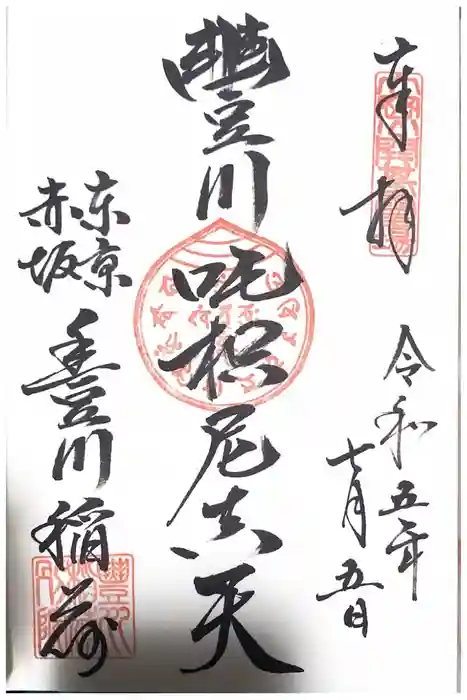 奉拝
令和五年
七月五日
豐川吒枳尼真天
東京
赤坂
豊川稲荷